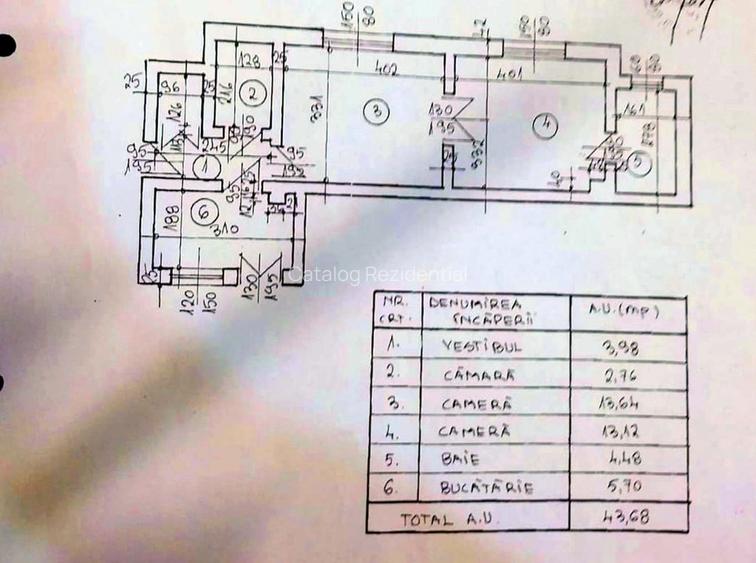 150
80
150
80
42
60
80
128
25
402
401
161
25
96
25
216
2
331
3
130
195
4
126
278
95
195
245
1
95
192
332
5
40
6
188
310
Catalog Rezidential
120
150
130
195
NR. CRT. DENUMIREA ÎNCĂPERII A.U. (MP)
1. VESTIBUL 3,98
2. CĂMARĂ 2,76
3. CAMERĂ 13,64
4. CAMERĂ 13,12
5. BAIE 4,48
6. BUCĂTĂRIE 5,70
TOTAL A.U. 43,68